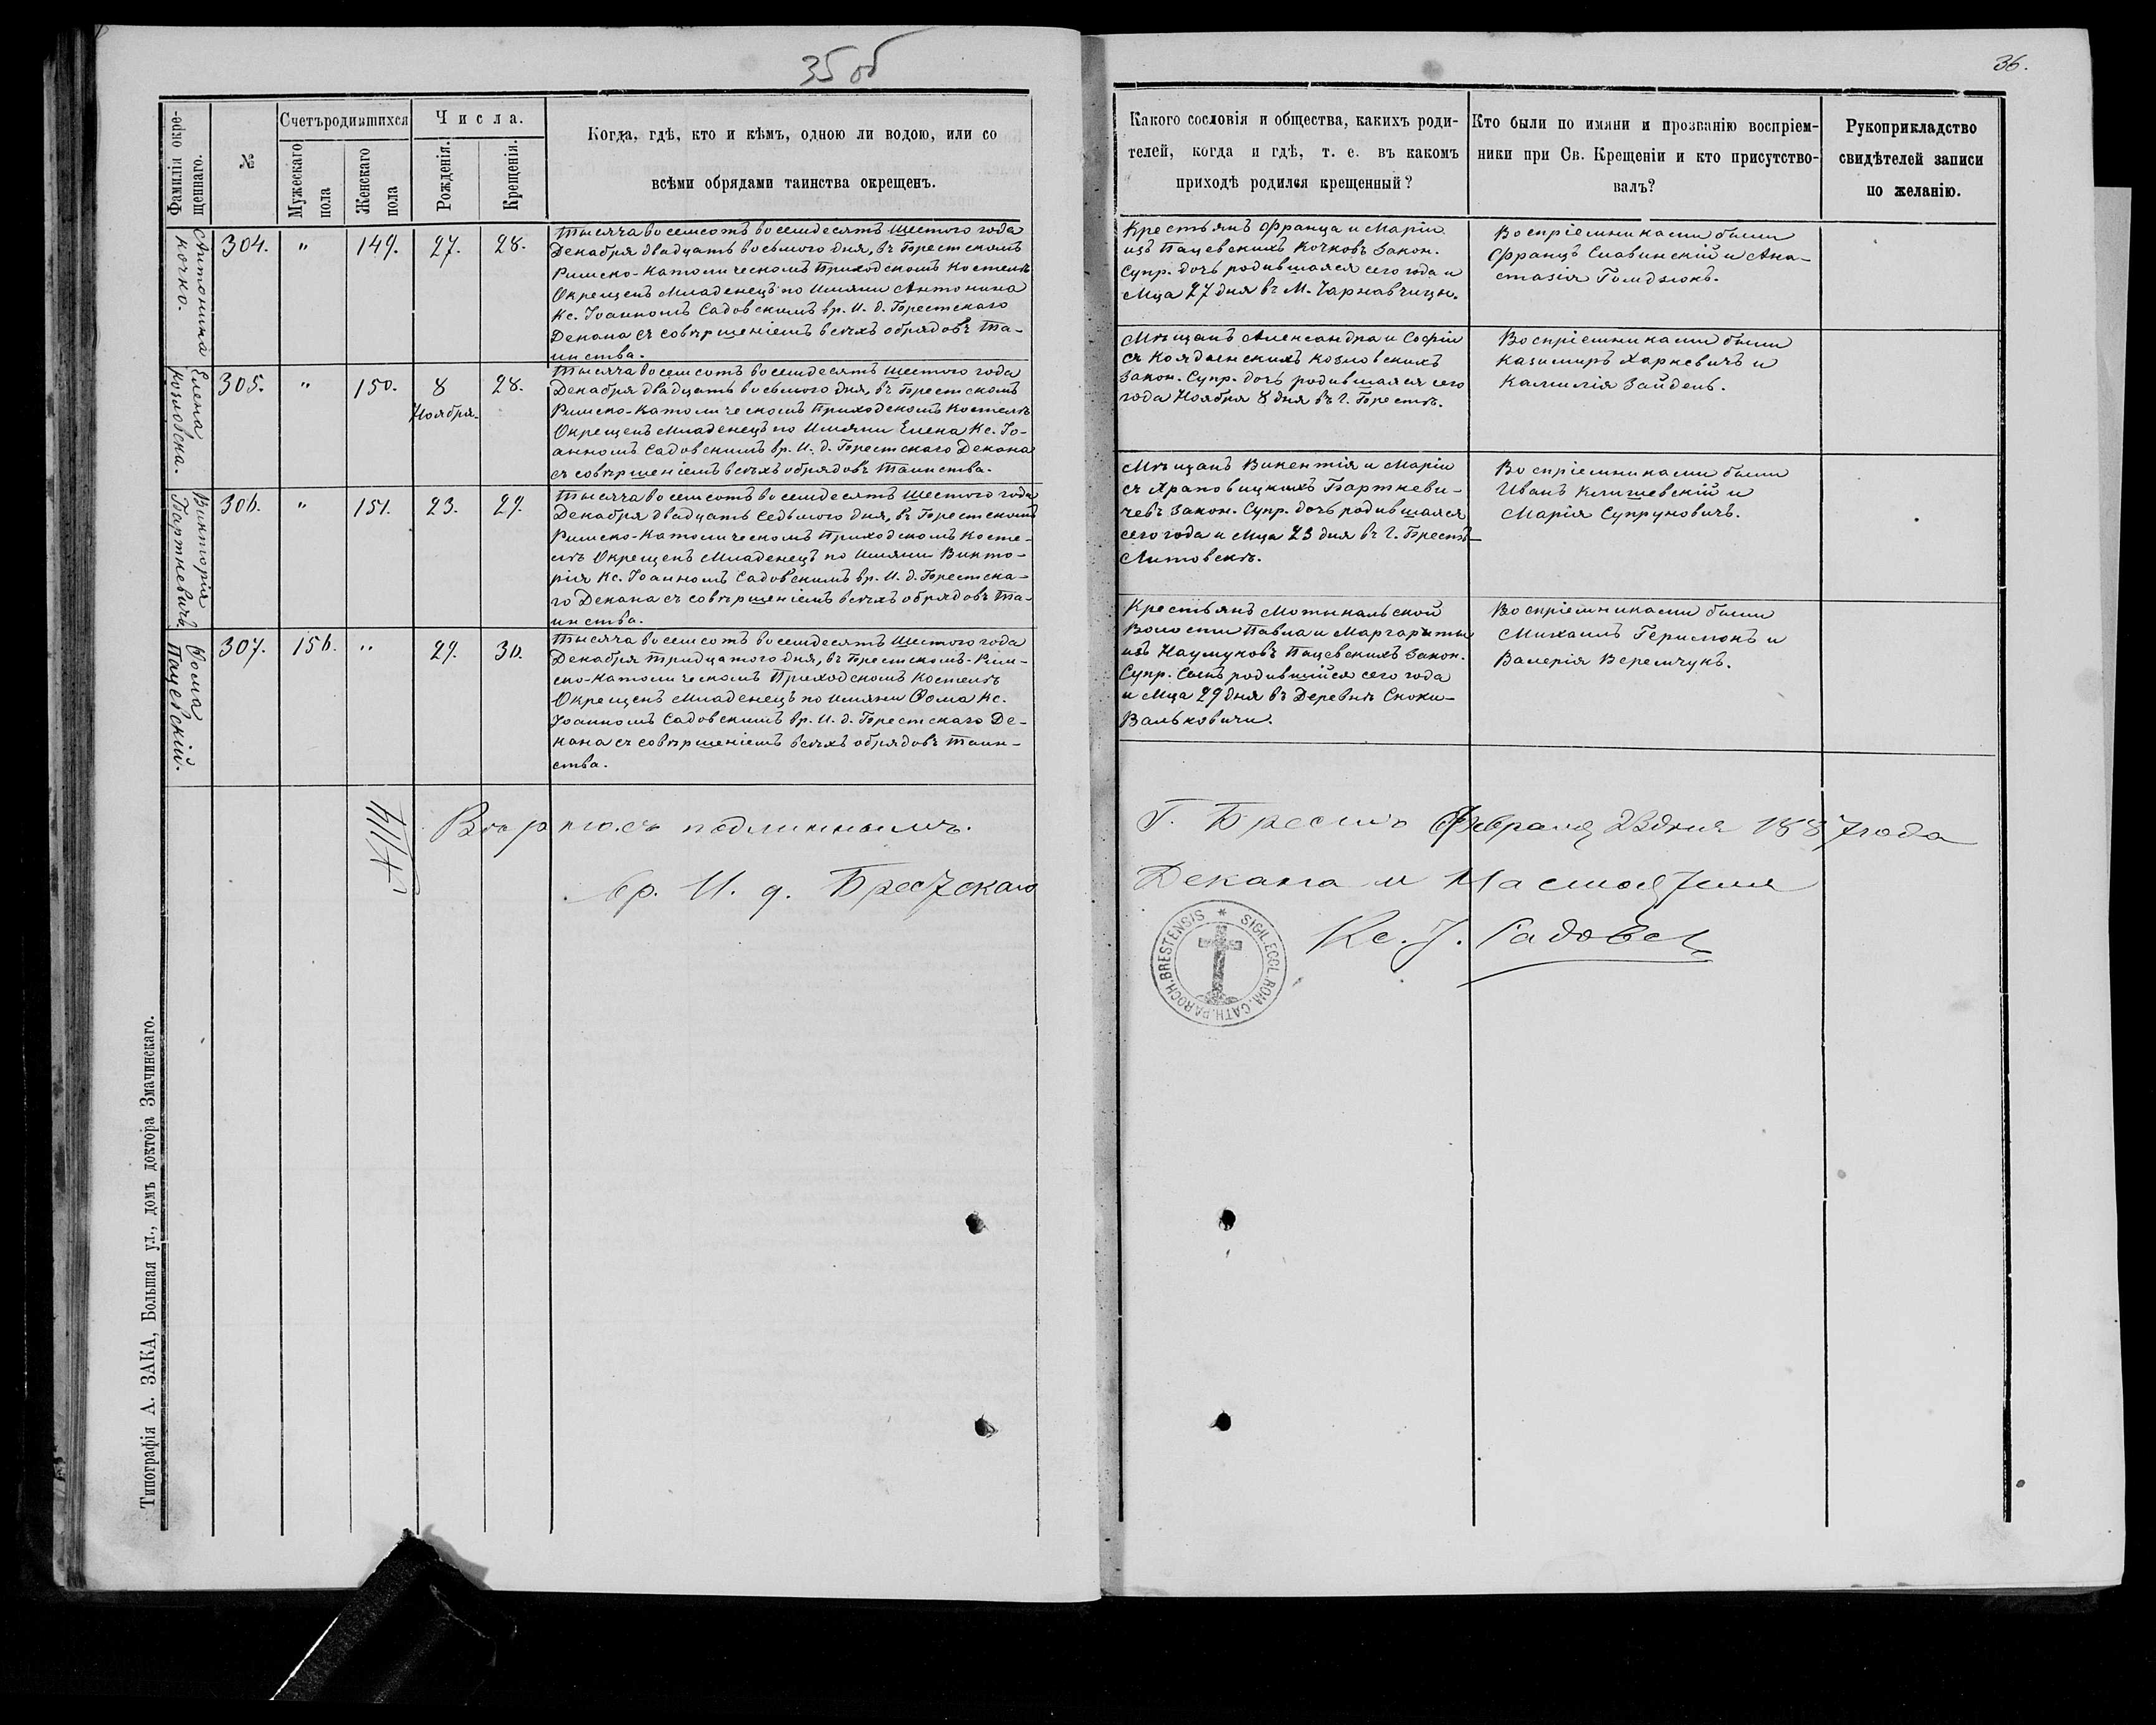 35 об
36.
Фамилія окре-
щеннаго.
№
Счетъ родившихся
Мужескаго
пола
Женскаго
пола
Числа.
Рожденія.
Крещенія.
Когда, гдѣ, кто и кѣмъ, одною ли водою, или со
всѣми обрядами таинства окрещенъ.
Какого сословія и общества, какихъ роди-
телей, когда и гдѣ, т. е. въ какомъ
приходѣ родился крещенный?
Кто были по имяни и прозванію воспріем-
ники при Св. Крещеніи и кто присутство-
валъ?
Рукоприкладство
свидѣтелей записи
по желанію.
Антонина
Кочко.
304. " 149. 27. 28.
Тысяча восемсотъ восемдесятъ шестого года
Декабря двадцать восьмого дня, въ Брестскомъ
Римско-Католическомъ Приходскомъ Костелѣ
Окрещенъ Младенецъ по Имяни Антонина
Кс. Іоанномъ Садовскимъ вр. И. д. Брестскаго
Декана съ совершеніемъ всѣхъ обрядовъ Та-
инства.
Крестьянъ Франца и Маріи
изъ Пацевскихъ Кочковъ Закон.
Супр. дочь родившаяся сего года и
Мца 27 дня въ М. Чарнавчицы.
Воспріемниками были
Францъ Славинскій и Ана-
стазія Голидзюкъ.
Елена
Козловска.
305. " 150. 8 28.
Ноября.
Тысяча восемсотъ восемдесятъ шестого года
Декабря двадцать восьмого дня, въ Брестскомъ
Римско-Католическомъ Приходскомъ Костелѣ
Окрещенъ Младенецъ по Имяни Елена Кс. Іо-
анномъ Садовскимъ вр. И. д. Брестскаго Декана
съ совершеніемъ всѣхъ обрядовъ Таинства.
Мѣщанъ Александра и Софіи
съ Козловскихъ
Закон. Супр. дочь родившаяся сего
года Ноября 8 дня въ г. Брестѣ.
Воспріемниками были
Казимиръ Харкевичъ и
Камилія Зайдель.
Викторія
Барткевичъ.
306. " 151. 23. 27.
Тысяча восемсотъ восемдесятъ шестого года
Декабря двадцать седьмого дня, въ Брестскомъ
Римско-Католическомъ Приходскомъ Косте-
лѣ Окрещенъ Младенецъ по Имяни Викто-
рія Кс. Іоанномъ Садовскимъ вр. И. д. Брестска-
го Декана съ совершеніемъ всѣхъ обрядовъ Та-
инства.
Мѣщанъ Викентія и Маріи
съ Храповицкихъ Барткеви-
чевъ Закон. Супр. дочь родившаяся
сего года и Мца 23 дня въ г. Брестъ-
Литовскѣ.
Воспріемниками были
Иванъ Климевскій и
Марія Супруновичъ.
Ѳома
Пацевскій.
307. 156. " 29. 30.
Тысяча восемсотъ восемдесятъ шестого года
Декабря тридцатого дня, въ Брестскомъ-Рим-
ско-Католическомъ Приходскомъ Костелѣ
Окрещенъ Младенецъ по Имяни Ѳома Кс.
Іоанномъ Садовскимъ вр. И. д. Брестскаго Де-
кана съ совершеніемъ всѣхъ обрядовъ Таин-
ства.
Крестьянъ Мотыкальской
Волости Павла и Маргариты
изъ Наумуковъ Пацевскихъ Закон.
Супр. Сынъ родившійся сего года
и Мца 29 дня въ Деревнѣ Скоки-
Вальковичи.
Воспріемниками были
Михаилъ Герилюкъ и
Валерія Веремчукъ.
Вѣрно съ подлиннымъ. Г. Брестъ Февраля 23 дня 1887 года
вр. И. д. Брестскаго Декана и Настоятеля
Кс. І. Садовск
SIGIL.ECCL.ROM.CATH.PAROCH.BRESTENSIS *
Типографія А. ЗАКА, Большая ул., домъ доктора Змачинскаго.